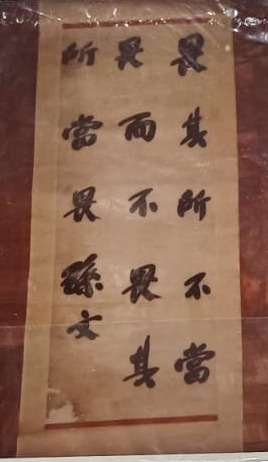 畏其所不當
畏而不畏其
所當畏孫文